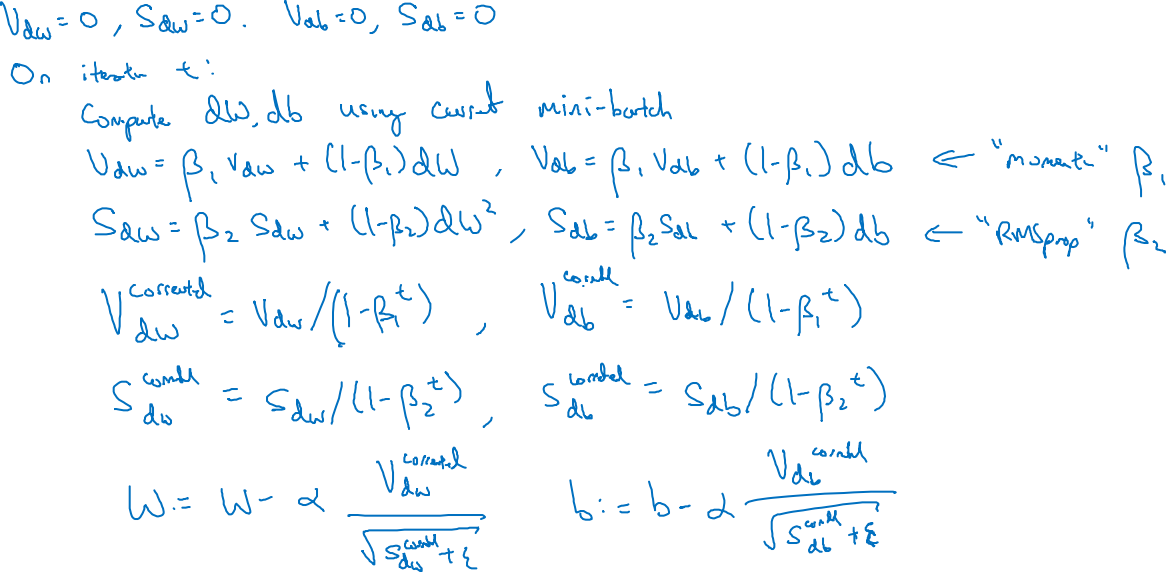 V_dw = 0, S_dw = 0. V_db = 0, S_db = 0
On iteratn t:
Compute dW, db using current mini-batch
V_dw = β₁ V_dw + (1-β₁) dW, V_db = β₁ V_db + (1-β₁) db ← "momentum" β₁
S_dw = β₂ S_dw + (1-β₂) dW², S_db = β₂ S_db + (1-β₂) db ← "RMSprop" β₂
V_dw^corrected = V_dw/(1-β₁^t), V_db^corrected = V_db/(1-β₁^t)
S_dw^corrected = S_dw/(1-β₂^t), S_db^corrected = S_db/(1-β₂^t)
W := W - α V_dw^corrected / √(S_dw^corrected + ε) b := b - α V_db^corrected / √(S_db^corrected + ε)